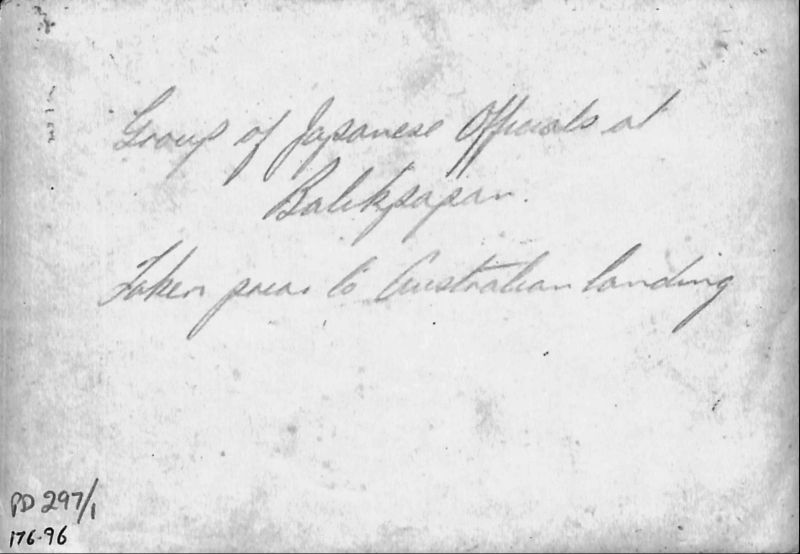 Group of Japanese Officials at
Balikpapan.
Taken prior to Australian landing
PD 297/1
176-96